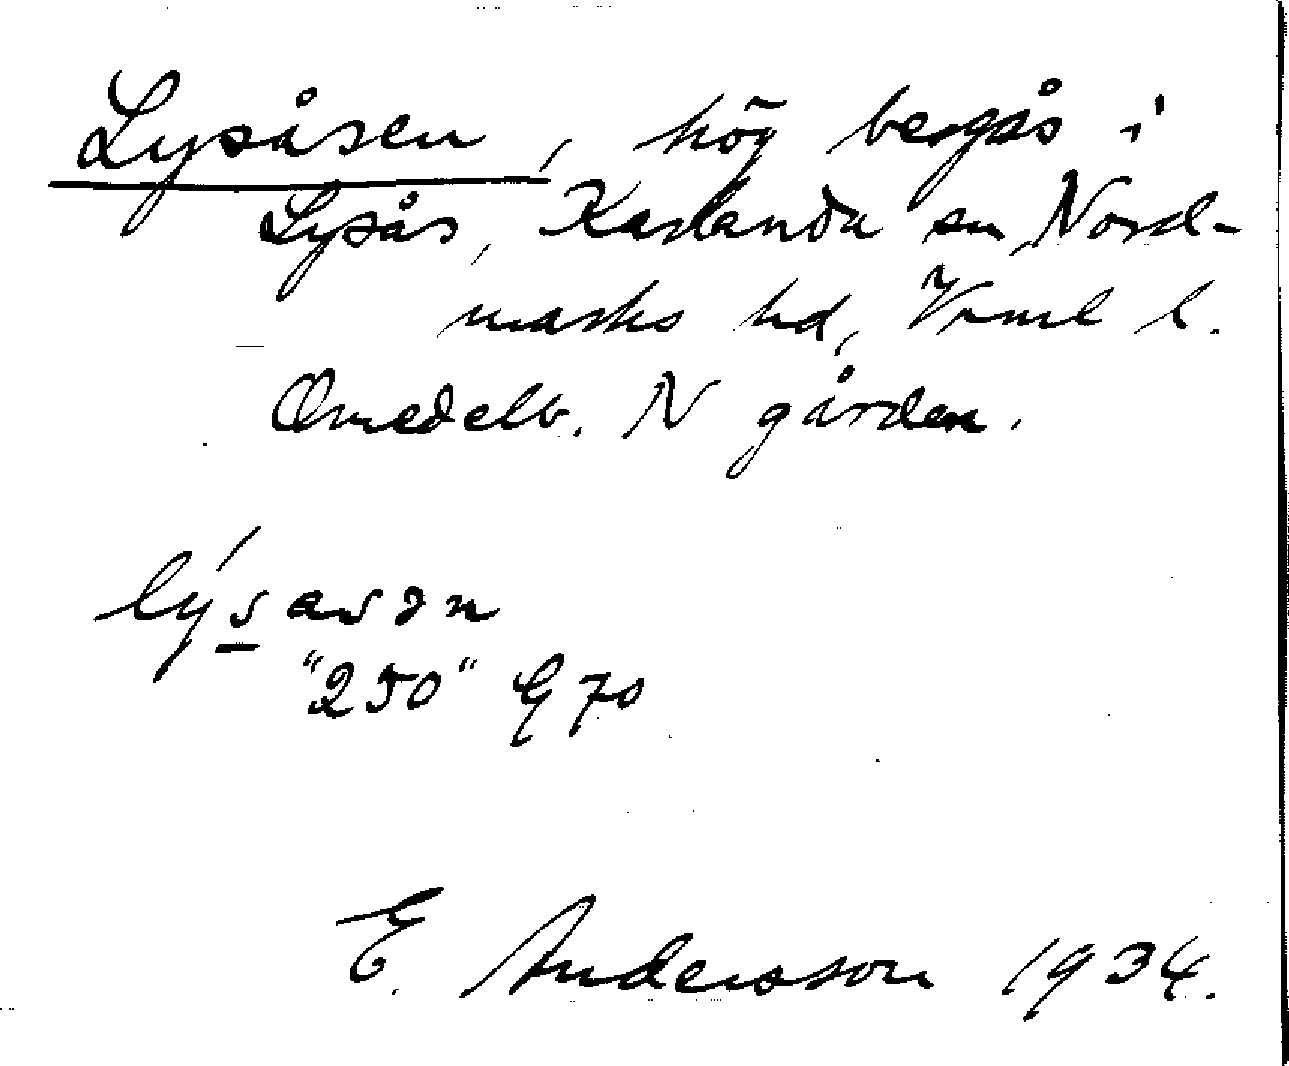 Lysåsen, hög bergås i
Lysås, Karlanda sn, Nord-
marks hd, Vrml l.
Omedelb. N gården.
lýsasən
"250" G 70
E. Andersson 1934.